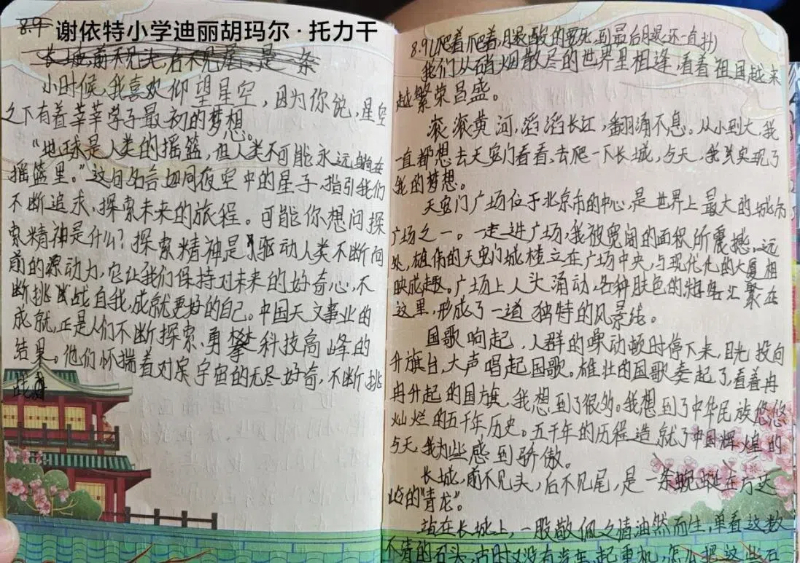 8.9 谢依特小学迪丽胡玛尔·托力干
长城前不见头,后不见尾,是一条
小时候,我喜欢仰望星空,因为你说,星空
之下有着莘莘学子最初的梦想。
“地球是人类的摇篮,但人类不可能永远
摇篮里。”这句名言如同夜空中的星子,指引我们
不断追求,探索未来的旅程。可能你想问探
索精神是什么?探索精神是驱动人类不断向
前的原动力,它让我们保持对未来的好奇心,不
断挑战自我,成就更好的自己。中国天文事业的
成就,正是人们不断探索,勇攀科技高峰的
结果。他们怀揣着对宇宙的无尽好奇,不断挑
8.9
我们从硝烟散尽的世界里相逢,看着祖国越来
越繁荣昌盛。
滚滚黄河,滔滔长江,翻涌不息。从小到大,我
一直都想去天安门看看,去爬一下长城,今天,我真实现了
我的梦想。
天安门广场位于北京市的中心,是世界上最大的城市
广场之一。一走进广场,我被宽阔的面积所震撼。远
处,雄伟的天安门城楼立在广场中央,与现代化的大厦相
映成趣。广场上人头涌动,各种肤色的游客汇聚在
这里,形成了一道独特的风景线。
国歌响起,人群的骚动顿时停下来,目光投向
升旗台,大声唱起国歌。雄壮的国歌奏起了,看着冉
冉升起的国旗,我想到了很多。我想到了中华民族悠悠
灿烂的五千年历史。五千年的历程造就了中国辉煌的
今天,我为此感到骄傲。
长城,前不见头,后不见尾,是一条蜿蜒在万里
的“青龙”。
站在长城上,一股敬佩之情油然而生,单看这数
不清的石头,古时又没有汽车、起重机,怎么把这些石